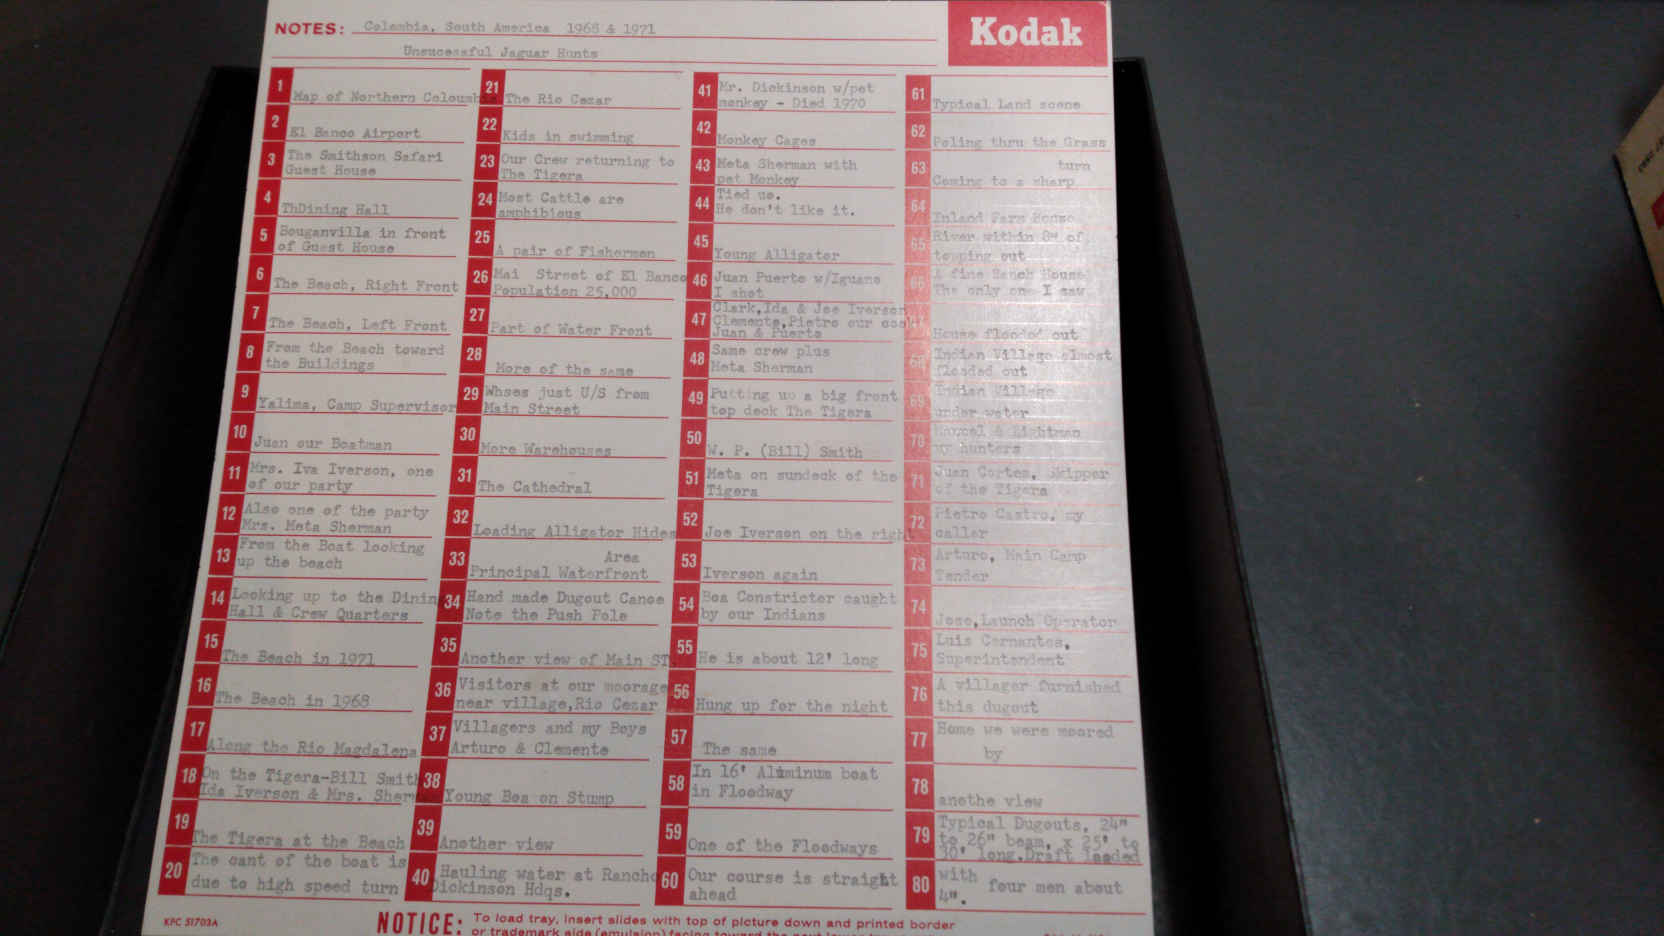 NOTES: Colombia, South America 1968 & 1971
Unsucessful Jaguar Hunts
Kodak
1 Map of Northern Coloumbia
2 El Banco Airport
3 The Smithson Safari
Guest House
4 ThDining Hall
5 Bouganvilla in front
of Guest House
6 The Beach, Right Front
7 The Beach, Left Front
8 From the Beach toward
the Buildings
9 Yalima, Camp Supervisor
10 Juan our Boatman
11 Mrs. Iva Iverson, one
of our party
12 Also one of the party
Mrs. Meta Sherman
13 From the Boat looking
up the beach
14 Looking up to the Dining
Hall & Crew Quarters
15 The Beach in 1971
16 The Beach in 1968
17 Along the Rio Magdalena
18 On the Tigera-Bill Smith
Ida Iverson & Mrs. Sherm
19 The Tigera at the Beach
20 The cant of the boat is
due to high speed turn
21 The Rio Cezar
22 Kids in swimming
23 Our Crew returning to
The Tigera
24 Most Cattle are
amphibious
25 A pair of Fishermen
26 Mai Street of El Banco
Population 25,000
27 Part of Water Front
28 More of the same
29 Whses just U/S from
Main Street
30 More Warehouses
31 The Cathedral
32 Loading Alligator Hides
33 Area
Principal Waterfront
34 Hand made Dugout Canoe
Note the Push Pole
35 Another view of Main ST.
36 Visitors at our moorage
near village,Rio Cezar
37 Villagers and my Boys
Arturo & Clemente
38 Young Boa on Stump
39 Another view
40 Hauling water at Rancho
Dickinson Hdqs.
41 Mr. Dickinson w/pet
monkey - Died 1970
42 Monkey Cages
43 Meta Sherman with
pet Monkey
44 Tied up.
He don't like it.
45 Young Alligator
46 Juan Puerto w/Iguano
I shot
47 Clark,Ida & Joe Iverson
Clemente,Pietro our cook
Juan & Puerto
48 Same crew plus
Meta Sherman
49 Putting up a big front
top deck The Tigera
50 W. P. (Bill) Smith
51 Meta on sundeck of the
Tigera
52 Joe Iverson on the right
53 Iverson again
54 Boa Constricter caught
by our Indians
55 He is about 12' long
56 Hung up for the night
57 The same
58 In 16' Aluminum boat
in Floodway
59 One of the Floodways
60 Our course is straight
ahead
61 Typical Land scene
62 Poling thru the Grass
63 turn
Coming to a sharp
64 Inland Farm House
65 River within 8" of
topping out
66 A fine Ranch House
The only one I saw
House flooded out
68 Indian Village almost
flooded out
69 Indian Village
under water
70 & Lightman
my hunters
71 Juan Cortes, Skipper
of the Tigera
72 Pietro Castro, my
caller
73 Arturo, Main Camp
Tender
74 Jose,Launch Operator
75 Luis Cernantes,
Superintendent
76 A villager furnished
this dugout
77 Home we were moored
by
78 anothe view
79 Typical Dugouts, 24"
to 26" beam, x 25' to
30' long.Draft loaded
80 with four men about
4".
KPC 51703A
NOTICE: To load tray, insert slides with top of picture down and printed border
or trademark side (emulsion) facing toward the next lower